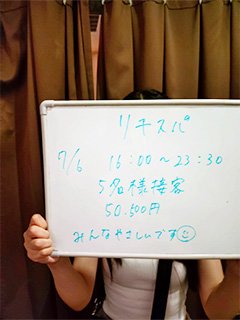 リチスパ
7/6 16:00〜23:30
5名様接客
50.500円
みんなやさしいです☺